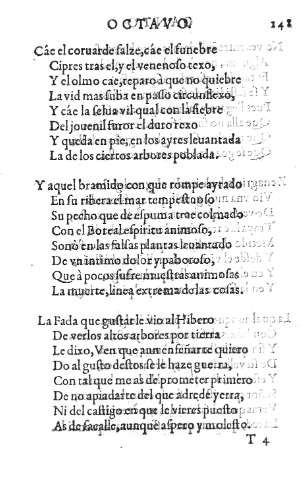 OCTAVO. 148
Cáe el coruarde salze, cáe el funebre
Cipres tras el, y el venenoso texo,
Y el olmo cae, reparo à que no quiebre
La vid mas suba en passo circunflexo,
Y cáe la selua vil qual con la fiebre
Del jouenil furor el duro rexo
Y queda en pie, en los ayres leuantada
La de los ciertos arbores poblada.
Y aquel bramido con que rompe ayrado
En su ribera el mar tempestuoso
Su pecho que de espuma trae colmado
Con el Boreal espiritu animoso,
Sonò en las falsas plantas leuantado
De vn intimo dolor y paboroso,
Que à pocos sufre muestras animosas
La muerte, linea extrema de las cosas.
La Fada que gustar le vio al Hibero
De verlos altos arbores por tierra
Le dixo, Ven que aun enseñarte quiero
Do al gusto destos se le haze guerra,
Con tal que me as de prometer primero
De no apiadarte del que adrede yerra,
Ni del castigo en que le vieres puesto
As de sacalle, aunque aspero y molesto.
T 4